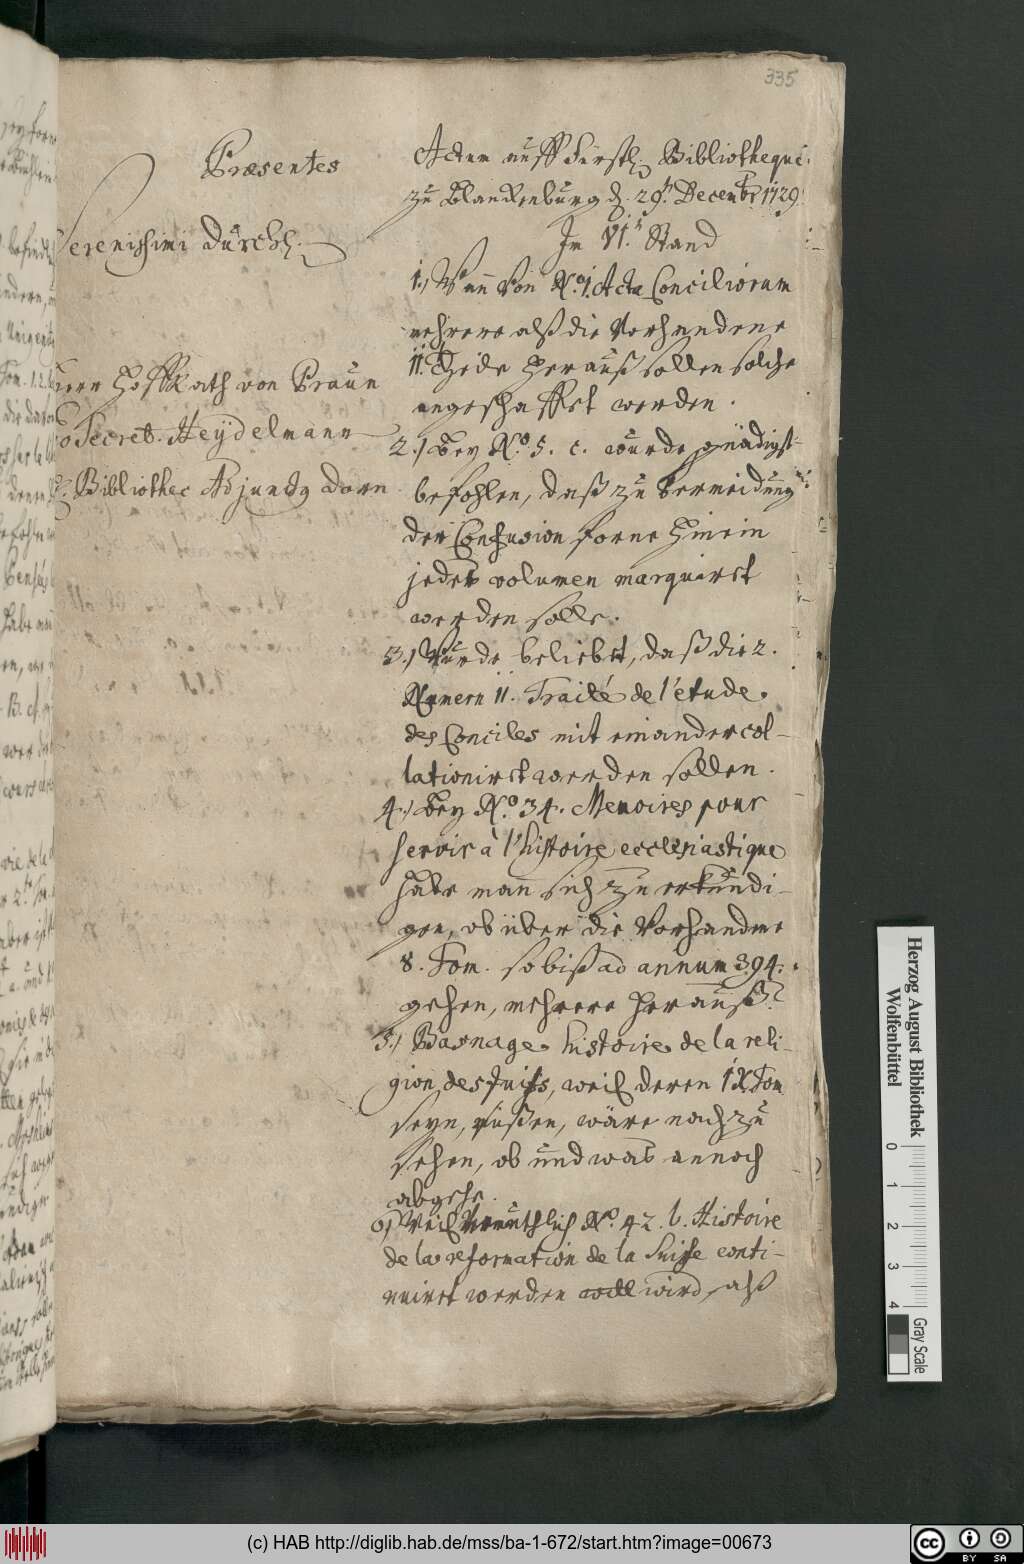 335
Præsentes
Serenissimi Durchl.
Herr Hoffrath von Praun
Secret. Heÿdelmann
Bibliothec Adjunctg Dorn
Actum auff Fürstl. Bibliotheque
zu Blanckenburg d. 29.t Decembr 1729.
Im VI.t Stand
1.) Wann von N.o 1. Acta Conciliorum
mehrere alß die Vorhandene
11. Theile herauß sollen solche
angeschaffet werden.
2.) Bey N.o 5. c. wurde gnädigst
befohlen, daß zu Vermeidung
der Confusion forne hinein
jedes volumen marquiret
werden solle.
3.) Wurde beliebet, daß die 2.
Numern 11. Traité de l'etude
des Conciles mit einander col-
lationiret werden sollen.
4.) Bey N.o 34. Memoires pour
servir à l'histoire ecclesiastique
habe man sich zu erkundi-
gen, ob über die Vorhandene
8. Tom. so biß ad annum 394.
gehen, mehrere herauß?
5.) Basnage histoire de la reli-
gion des Juifs, weil deren IX Tom
seyn, müßen, wäre nachzu
sehen, ob und was annoch
abgehe.
6.) Weil Vermuthlich N.o 42. b. Histoire
de la reformation de la Suisse conti-
nuiret werden will wird, alß
Herzog August Bibliothek
Wolfenbüttel
0 1 2 3 4
Gray Scale
(c) HAB http://diglib.hab.de/mss/ba-1-672/start.htm?image=00673
cc BY SA